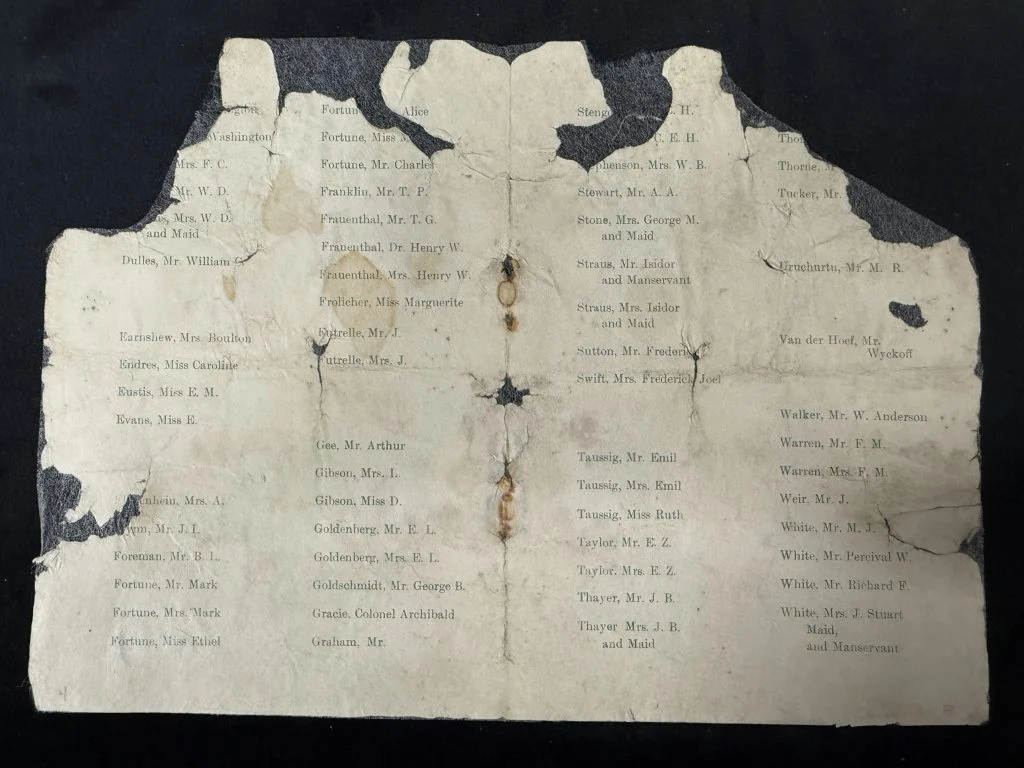 Washington
Mrs. F. C.
Mr. W. D.
Mrs. W. D.
and Maid
Dulles, Mr. William C.
Earnshew, Mrs. Boulton
Endres, Miss Caroline
Eustis, Miss E. M.
Evans, Miss E.
Mrs. A.
Mr. J. I.
Foreman, Mr. B. L.
Fortune, Mr. Mark
Fortune, Mrs. Mark
Fortune, Miss Ethel
Alice
Fortune, Miss
Fortune, Mr. Charles
Franklin, Mr. T. P.
Frauenthal, Mr. T. G.
Frauenthal, Dr. Henry W.
Frauenthal, Mrs. Henry W.
Frolicher, Miss Marguerite
Futrelle, Mr. J.
Futrelle, Mrs. J.
Gee, Mr. Arthur
Gibson, Mrs. L.
Gibson, Miss D.
Goldenberg, Mr. E. L.
Goldenberg, Mrs. E. L.
Goldschmidt, Mr. George B.
Gracie, Colonel Archibald
Graham, Mr.
H.
C. E. H.
Mrs. W. B.
Stewart, Mr. A. A.
Stone, Mrs. George M.
and Maid
Straus, Mr. Isidor
and Manservant
Straus, Mrs. Isidor
and Maid
Sutton, Mr. Frederick
Swift, Mrs. Frederick Joel
Taussig, Mr. Emil
Taussig, Mrs. Emil
Taussig, Miss Ruth
Taylor, Mr. E. Z.
Taylor, Mrs. E. Z.
Thayer, Mr. J. B.
Thayer Mrs. J. B.
and Maid
Thorne,
Tucker, Mr.
Uruchurtu, Mr. M. R.
Van der Hoef, Mr.
Wyckoff
Walker, Mr. W. Anderson
Warren, Mr. F. M.
Warren, Mrs. F. M.
Weir, Mr. J.
White, Mr. M. J.
White, Mr. Percival W.
White, Mr. Richard F.
White, Mrs. J. Stuart
Maid,
and Manservant